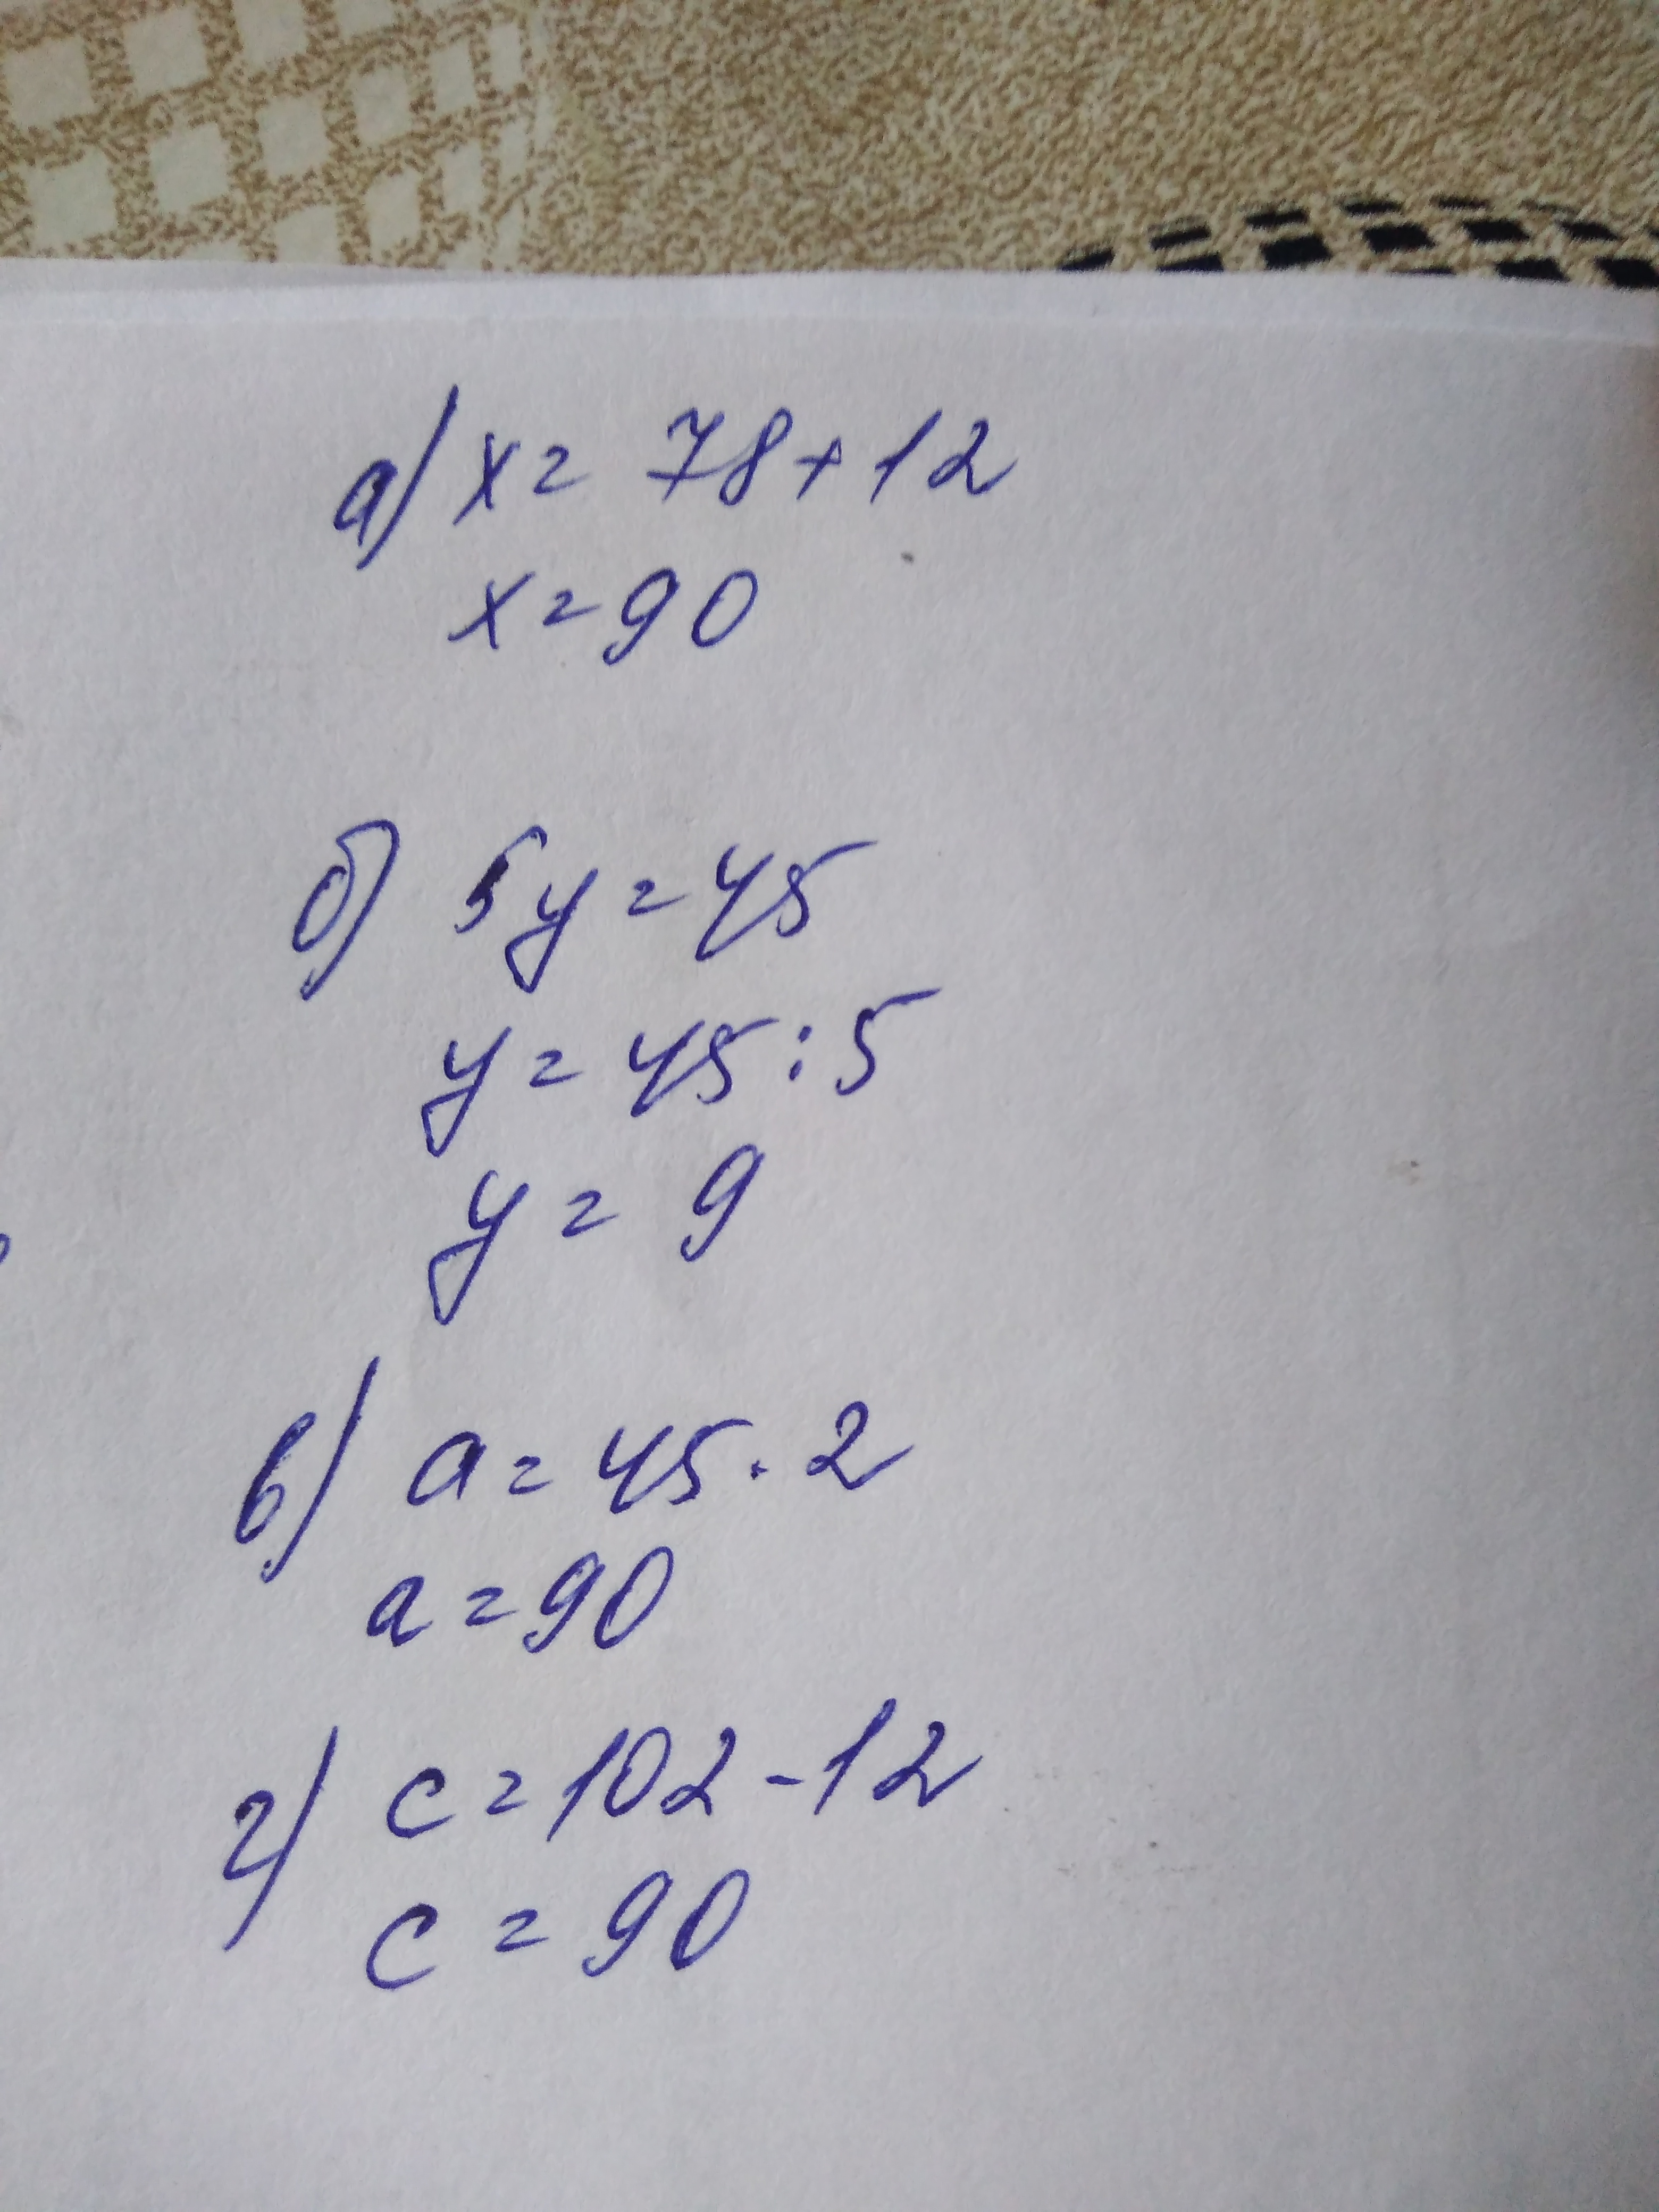 а) x = 78 + 12
x = 90
б) 5y = 45
y = 45 : 5
y = 9
в) a = 45 · 2
a = 90
г) c = 102 - 12
c = 90